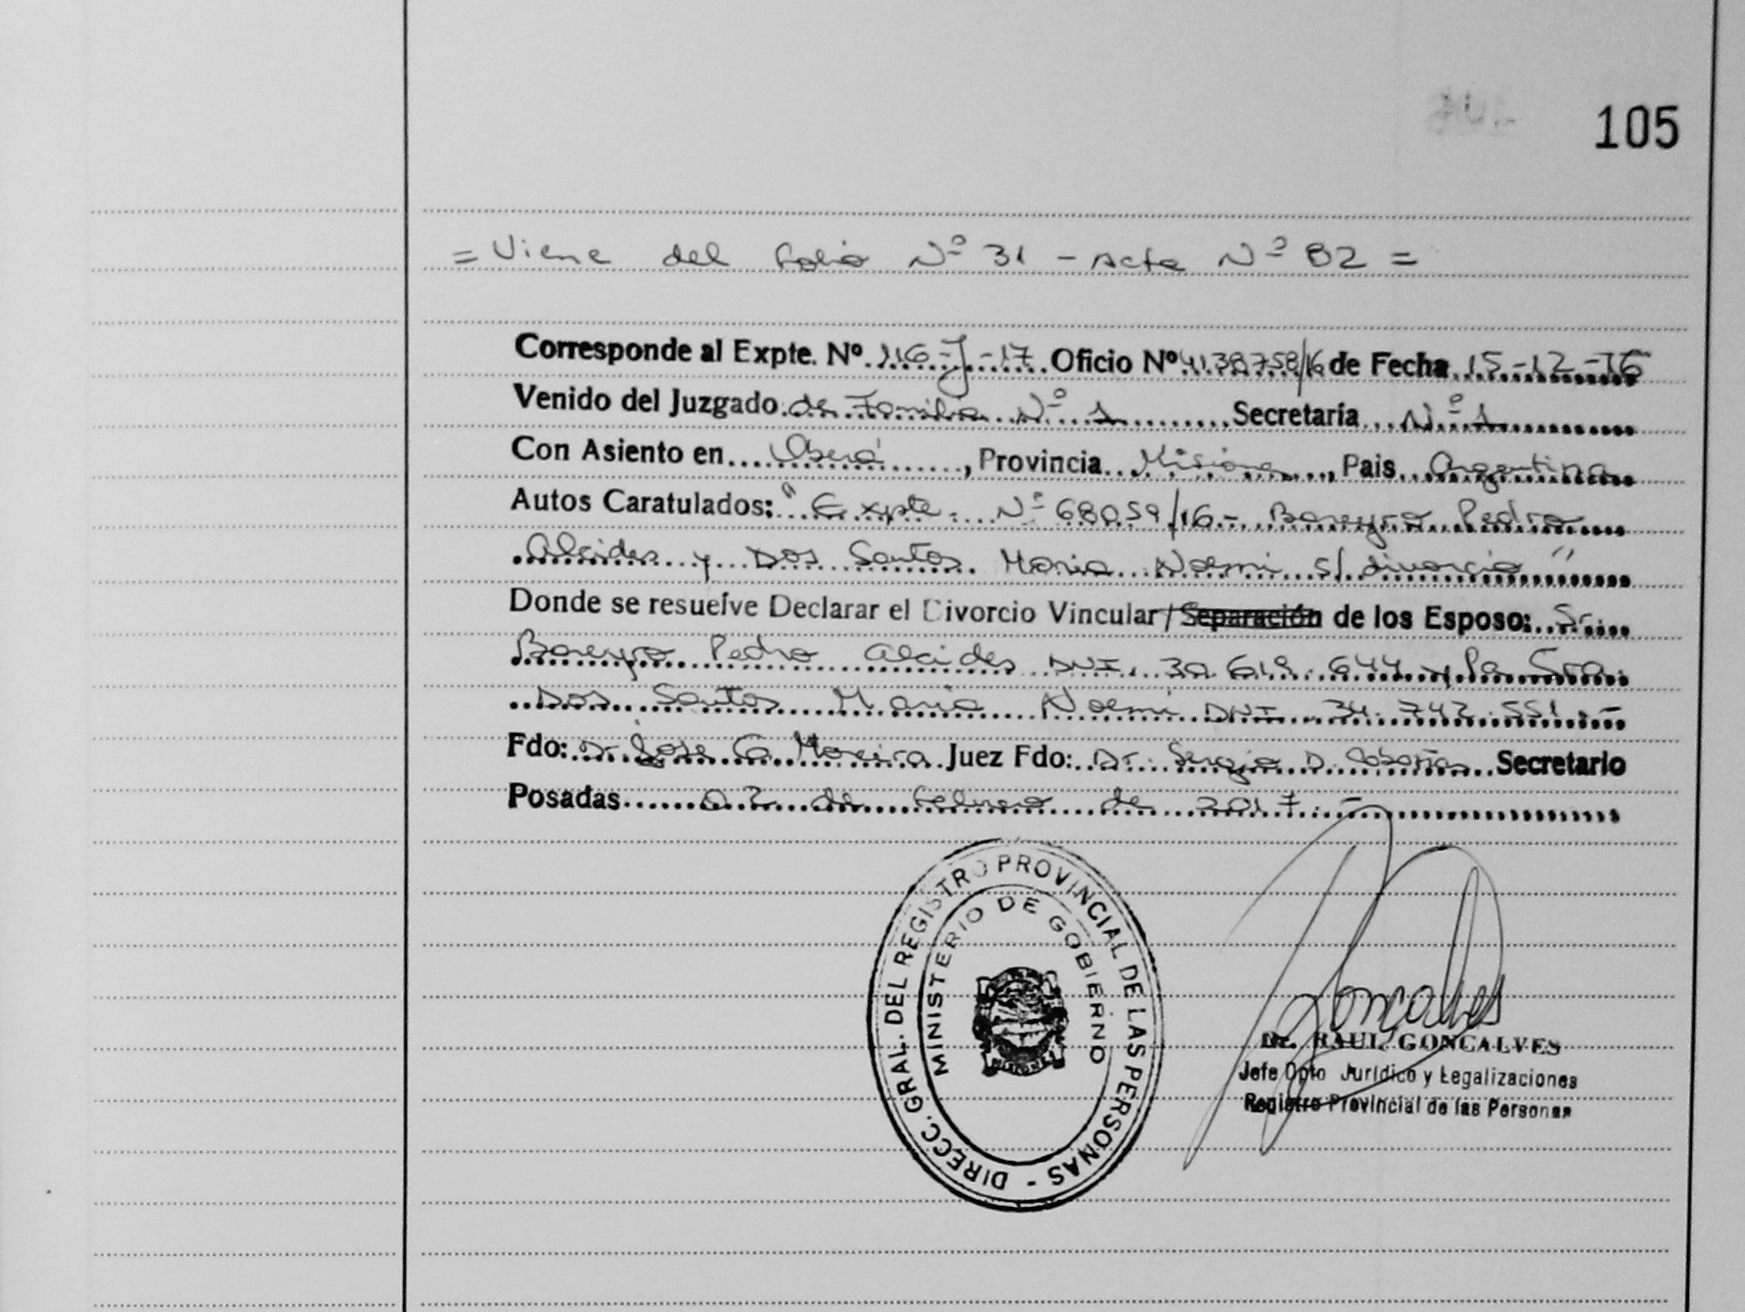 105
= Viene del folio Nº 31 - Acta Nº 82 =
Corresponde al Expte. Nº 116-J-17 Oficio Nº 4138758/16 de Fecha 15-12-16
Venido del Juzgado de Familia Nº 1 Secretaría Nº 1
Con Asiento en Oberá, Provincia Misiones, Pais Argentina
Autos Caratulados: "Expte. Nº 68059/16 - Boreyro Pedro
Alcides y Dos Santos Maria Noemi s/divorcio"
Donde se resuelve Declarar el Divorcio Vincular/Separación de los Esposo: Sr.
Boreyro Pedro Alcides DNI. 30.619.644 y la Sra.
Dos Santos Maria Noemi DNI 34.742.551.-
Fdo: Dr. Jose G. Moreira Juez Fdo: Dr. Sergio D. Secretario
Posadas 02 de febrero de 2017.-
DIRECC. GRAL. DEL REGISTRO PROVINCIAL DE LAS PERSONAS -
MINISTERIO DE GOBIERNO
MISIONES
Goncalves
Dr. RAUL GONCALVES
Jefe Dpto Jurídico y Legalizaciones
Registro Provincial de las Personas